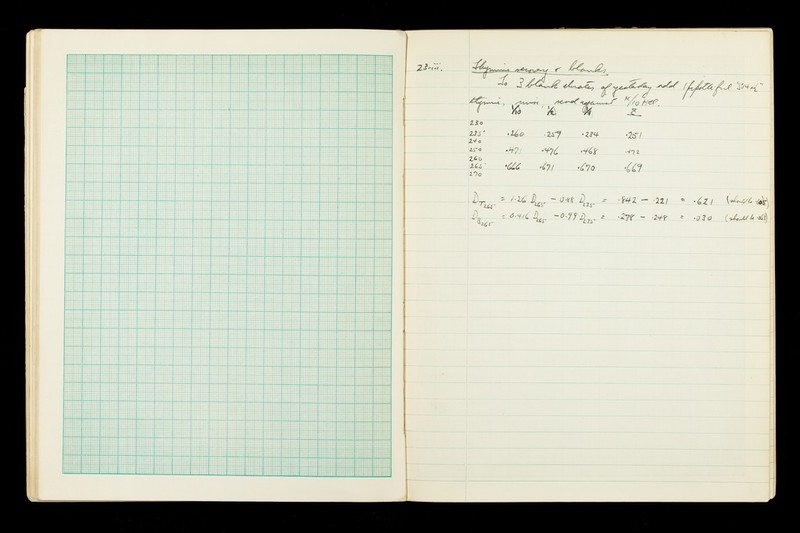 23.iii. Thymine recovery & blanks
To 3 blank eluates of yesterday add 1 pipette full
thymine, mix, read against N/10 HCl.
230
235 .260 .259 .234 .251
240
250 .471 .476 .468 .472
260
265 .666 .671 .670 .669
270
D T265 = 1.26 D265 - 0.88 D235 = .842 - .221 = .621 (should be
D B265 = 0.416 D265 - 0.99 D235 = .278 - .248 = .030 (should be